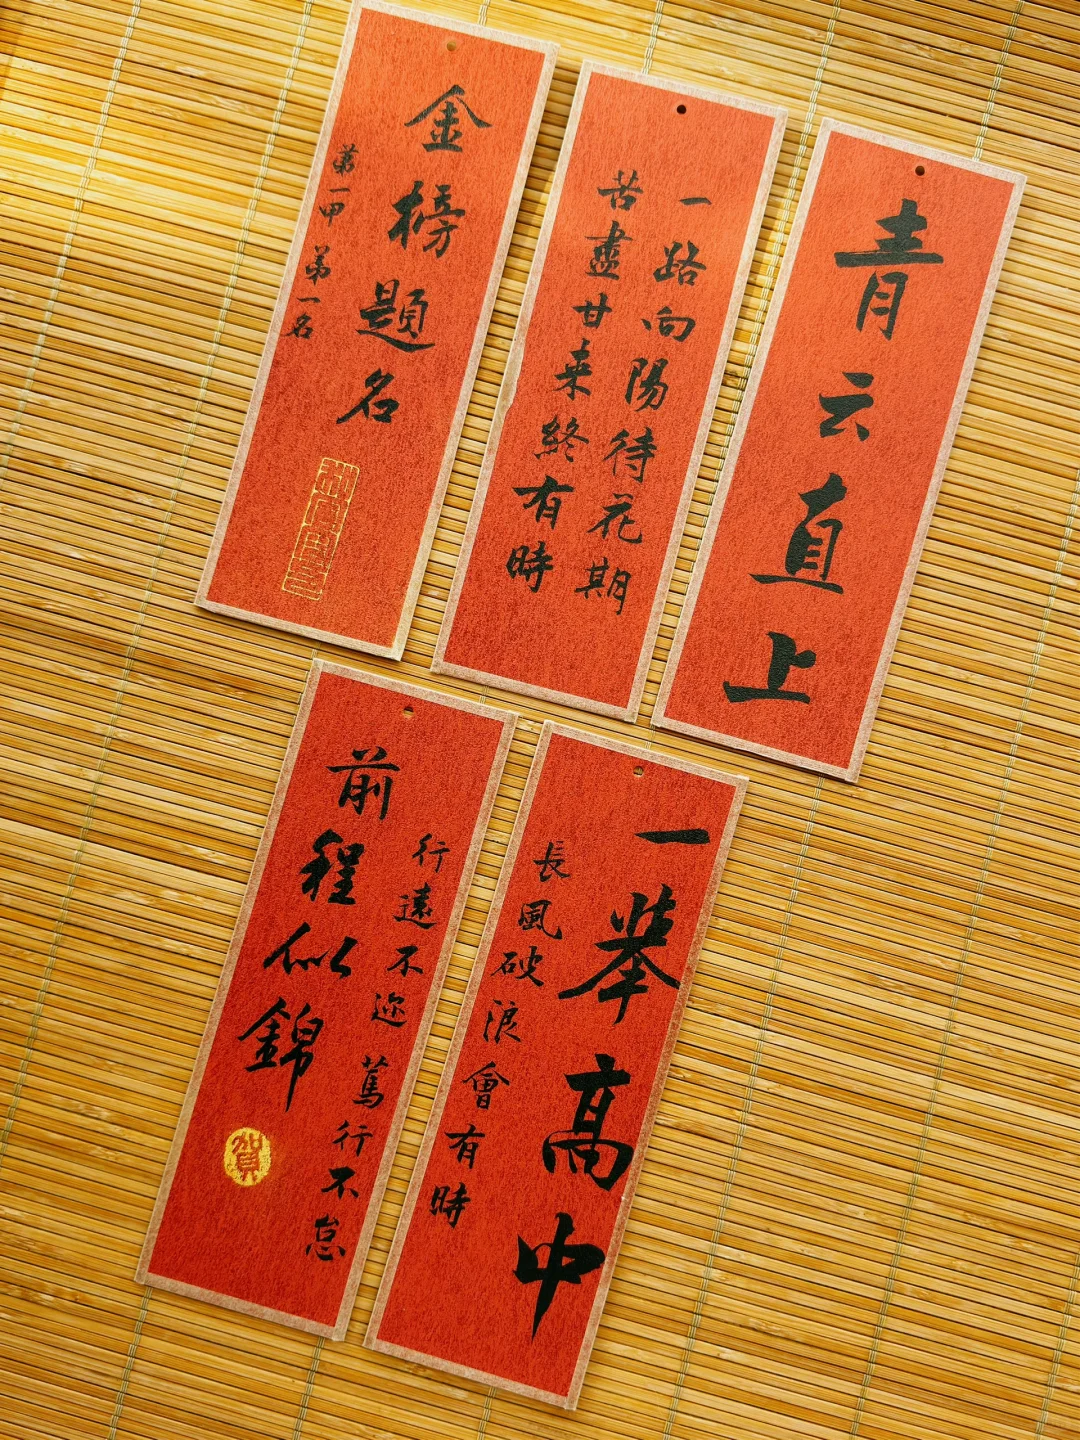 金榜題名
第一甲 第一名
一路向陽待花期
苦盡甘来終有時
青云直上
行遠不迩 篤行不怠
前程似錦
賀
一举高中
長風破浪會有時